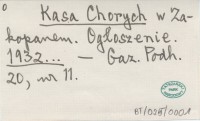 Kasa Chorych w Za-
kopanem. Ogłoszenie.
1932... — Gaz. Podh.
20, nr 11.
BT/028/0001